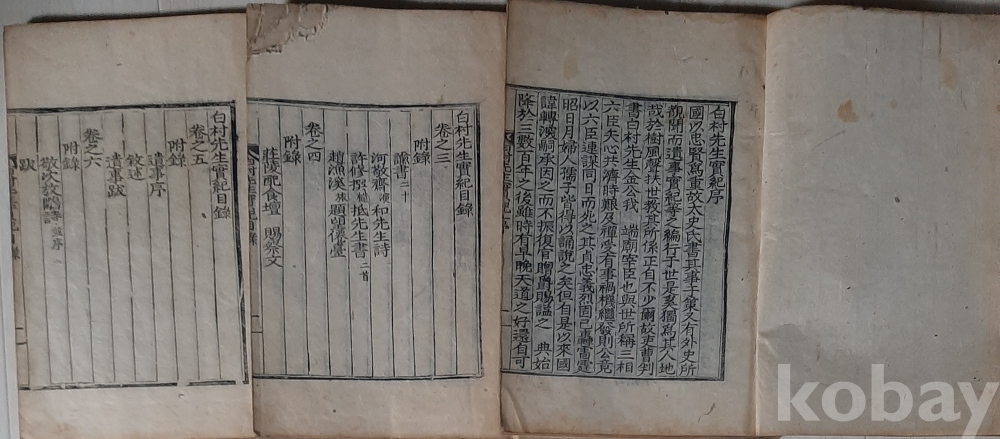 白村先生實紀序
國以忠賢爲重故太史氏書其事于策又有外史所
覩聞而遺事實紀等之編行于世是奚獨爲其人地
哉於樹風聲淑世敎其所係正自不少爾故吏曹判
書白村先生金公我 端廟宰臣也與世所稱三相
六臣矢心共濟時艱及禪受有事禍機繼發則公竟
以六臣連謀同日而死之其貞忠義烈固已轟雷霆
昭日月婦人孺子皆得以誦說之矣但自是以來國
諱轉深嗣承因之而不振復官贈爵賜諡之 典始
降於三數百年之後雖時有早晚天道之好還自可
白村先生實紀目錄
卷之三
附錄
諭書二十
河敬齋演和先生詩
許修撰抵先生書二首
趙漁溪旅題 漢臺
卷之四
附錄
莊陵配食壇 賜祭文
白村先生實紀目錄
卷之五
附錄
遺事序
敘述
遺事跋
卷之六
附錄
敬次 隱詩並序
跋
kobay